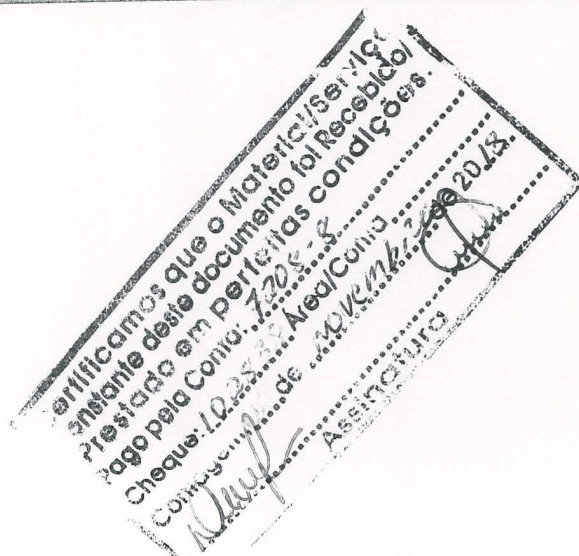 ertificamos que o Material/Serviço
onstante deste documento foi Recebido/
Prestado em perfeitas condições.
Pago pela Conta: 7.208-8
Cheque: Área/Conta
Contagem, de novembro de 2018
Assinatura